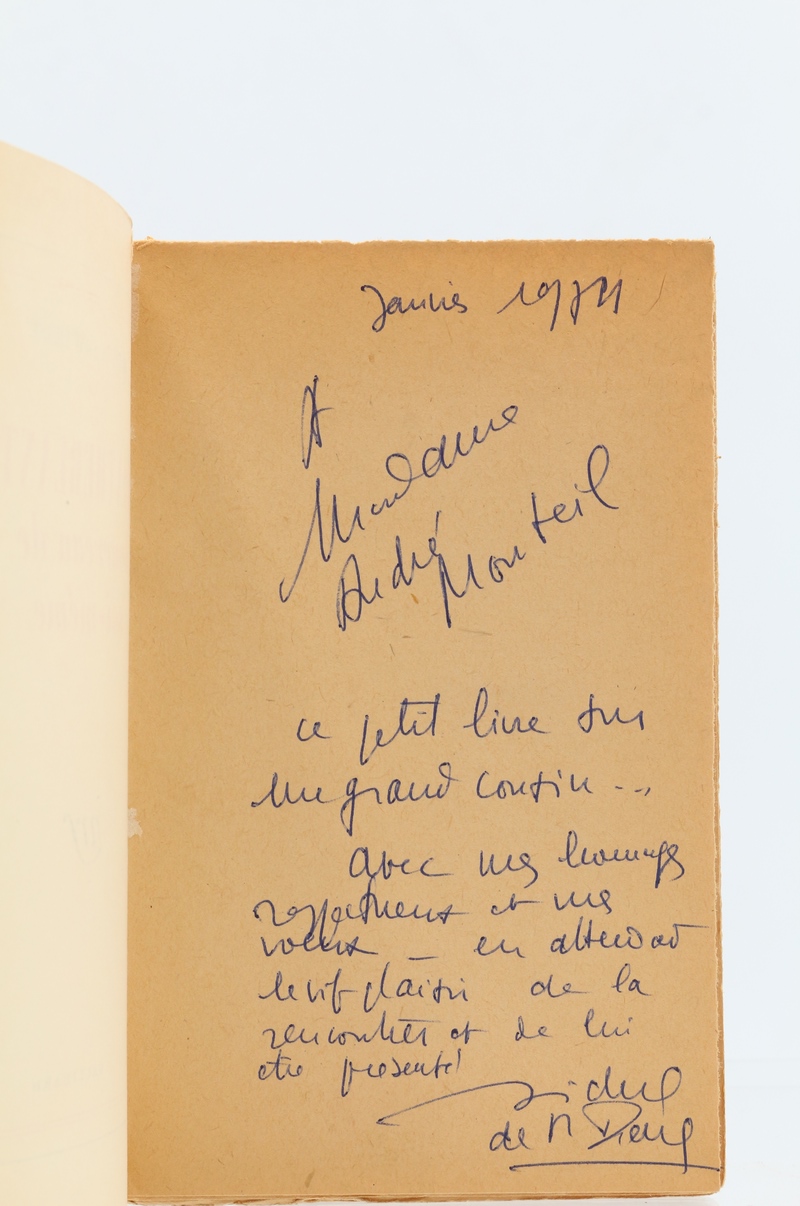 Janvier
A
Madame
André Monteil
ce petit livre sur
un grand cousin...
avec mes hommages
respectueux et mes
voeux _ en attendant
le vif plaisir de la
rencontrer et de lui
être présenté
Michel
de St Pierre